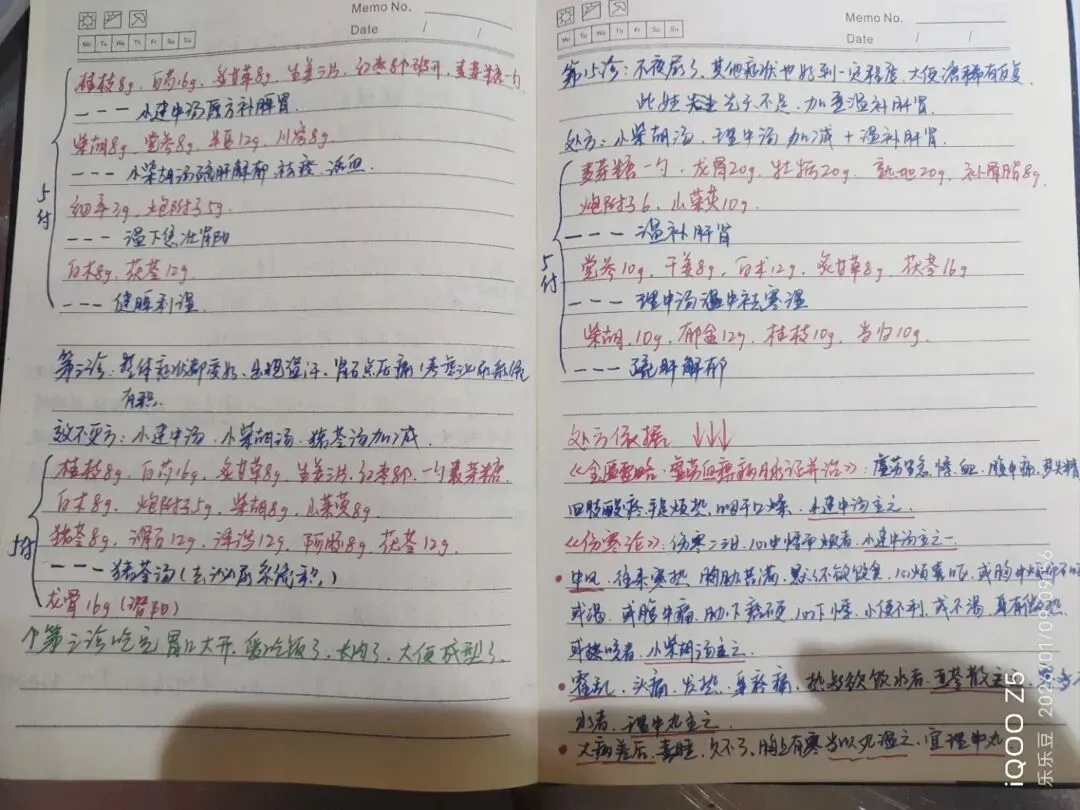 Memo No.
Date / /
Mo Tu We Th Fr Sa Su
桂枝8g、白芍16g、炙甘草8g、生姜三片、红枣8个掰开、麦芽糖一勺
--- 小建中汤原方补脾胃.
柴胡8g 党参8g 12g、川芎8g
--- 小柴胡汤疏肝解郁 祛痰、活血.
细辛3g、炮附子5g.
--- 温下焦壮肾阳
白术8g、茯苓12g.
--- 健脾利湿.
5付
第二诊:整体症状都变好、出现盗汗、肾石点压痛(考虑泌尿系统
有积.
效不更方:小建中汤、小柴胡汤、猪苓汤加减.
桂枝8g、白芍16g、炙甘草8g、生姜三片、红枣8个、一勺麦芽糖
白术8g、炮附子5g、柴胡8g、山茱萸8g.
猪苓8g、滑石12g、泽泻12g、阿胶8g、茯苓12g.
--- 猪苓汤(去泌尿系统积.)
龙骨16g(潜阳)
5付
个第二诊吃完胃口大开、爱吃饭了、长肉了、大便成型了.
Memo No.
Date / /
Mo Tu We Th Fr Sa Su
第15诊:不夜尿了、其他症状也好到一定程度、大便溏稀有反复.
此娃 先天不足、加重温补肝肾.
处方:小柴胡汤、理中汤加减+温补肝肾.
麦芽糖一勺、龙骨20g、牡蛎20g、熟地20g、补骨脂8g、
炮附子6、山茱萸10g.
--- 温补肝肾
党参10g、干姜8g、白术12g、炙甘草8g、茯苓16g
--- 理中汤温中祛寒湿
柴胡、10g、郁金12g、桂枝10g、当归10g
--- 疏肝解郁
5付
处方依据 ↓↓↓
《金匮要略·虚劳血痹病脉证并治》:虚劳里急、悸、血、腹中痛、梦失精
四肢酸疼、手足烦热、咽干口燥、小建中汤主之.
《伤寒论》:伤寒二三日、心中悸而烦者、小建中汤主之.
• 中风、往来寒热、胸胁苦满、默默不欲饮食、心烦喜呕、或胸中烦而不呕
或渴、或腹中痛、胁下痞硬、心下悸、小便不利、或不渴、身有微热
或咳者、小柴胡汤主之.
• 霍乱、头痛、发热、身疼痛、热多欲饮水者、五苓散主之、
水者、理中丸主之.
• 大病差后、喜唾、久不了、胸上有寒当以丸温之、宜理中丸
iQOO Z5
2026/01/09
乐乐豆